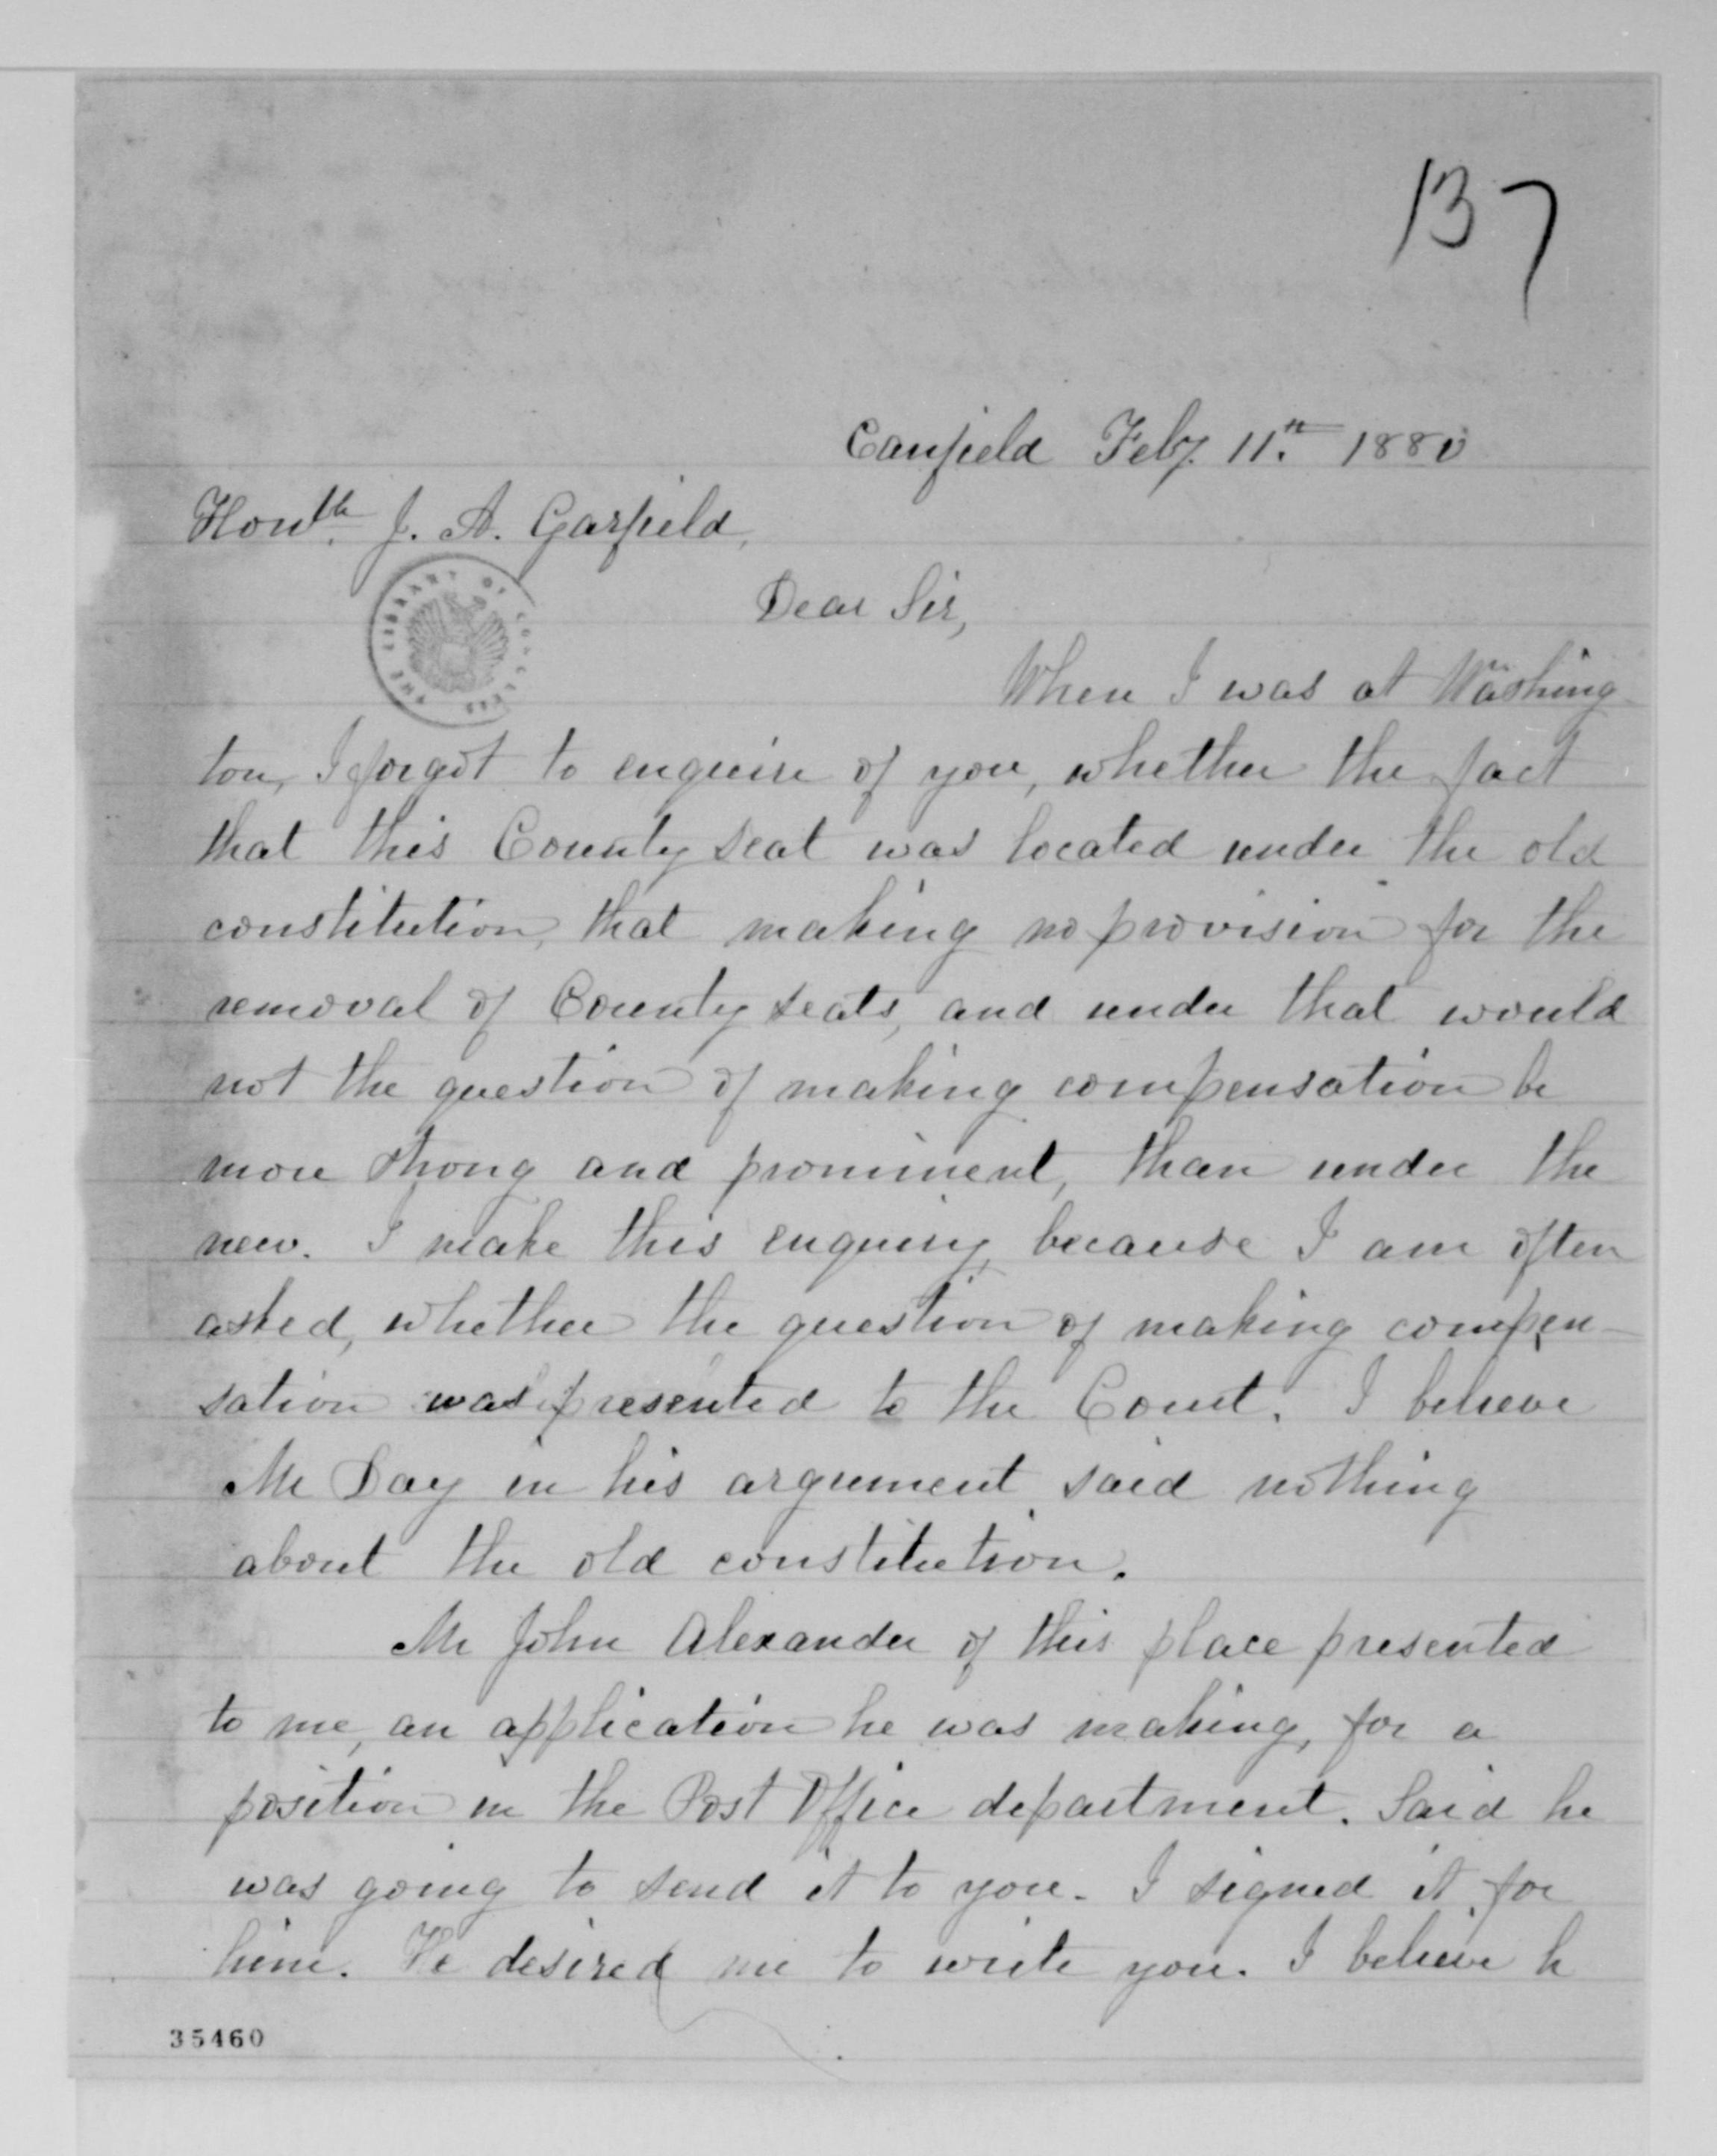 137
Canfield Feby. 11th 1880
Honble J. A. Garfield,
Dear Sir,
THE LIBRARY OF CONGRESS
When I was at Washing-
ton, I forgot to enquire of you, whether the fact
that this County seat was located under the old
constitution, that making no provision for the
removal of County seats, and under that would
not the question of making compensation be
more strong and prominent, than under the
new. I make this enquiry, because I am often
asked, whether the question of making compen-
sation was presented to the Court. I believe
Mr Day in his argument said nothing
about the old constitution.
Mr John Alexander of this place presented
to me, an application he was making, for a
position in the Post Office department. Said he
was going to send it to you. I signed it for
him. He desired me to write you. I believe h
35460